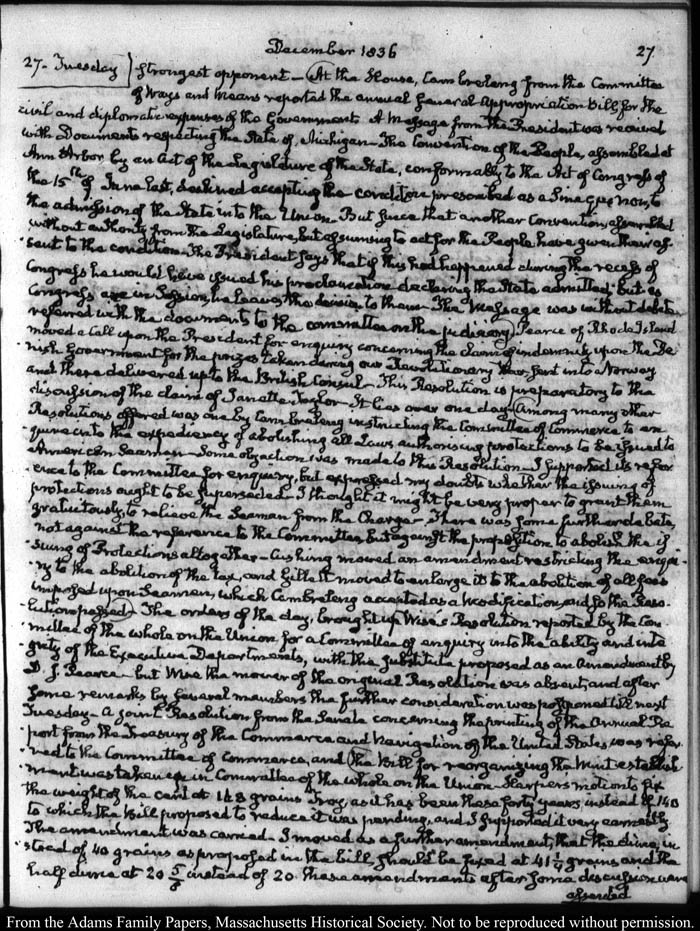 December 1836
27
27. Tuesday strongest opponent — At the House, Cambreleng from the Committee
of Ways and Means reported the annual General Appropriation Bill for the
civil and diplomatic expenses of the Government. A Message from the President was received
with Documents respecting the State of Michigan — The Convention of the People, assembled at
Ann Arbor by an Act of the Legislature of the State, conformably to the Act of Congress of
the 15th of June last, declined accepting the condition prescribed as a Sine qua non, to
the admission of the State into the Union. But since that another Convention assembled
without authority from the Legislature, but assuming to act for the People have given their as-
sent to the condition. The President says that if this had happened during the recess of
Congress he would have issued his proclamation declaring the State admitted: but as
Congress are in Session, he leaves the decision to them — The Message was without debate
referred with the documents to the committee on the judiciary. Pearce of Rhode Island
moved a Call upon the President for enquiry concerning the claim of indemnity upon the Da-
nish Government for the prizes taken during our Revolutionary War, sent into Norway
and there delivered up to the British Consul — This Resolution is preparatory to the
discussion of the claim of Janette Taylor — It lies over one day — Among many other
Resolutions offered was one by Cambreleng instructing the Committee of Commerce to en-
quire into the expediency of abolishing all Laws authorising protections to be issued to
American Seamen — Some objection was made to this Resolution — I supported its refer-
ence to the Committee for enquiry, but expressed my doubts whether the issuing of
protections ought to be superseded — I thought it might be very proper to grant them
gratuitously, to relieve the Seaman from the Charge — There was some further debate,
not against the reference to the Committee but against the proposition to abolish the is-
suing of Protections altogether — Cushing moved an amendment restricting the enqui-
ry to the abolition of the tax, and Gillet moved to enlarge it to the abolition of all fees
imposed upon Seamen, which Cambreleng accepted as a Modification, and so the Reso-
lution passed — The orders of the day, brought up Wise's Resolution reported by the Com-
mittee of the whole on the Union for a Committee of enquiry into the ability and inte-
grity of the Executive Departments, with the Substitute proposed as an Amendment by
D. J. Pearce — but Wise the mover of the original Resolution was absent, and after
some remarks by several members the further consideration was postponed till next
Tuesday — A joint Resolution from the Senate concerning the printing of the Annual Re-
port from the Treasury of the Commerce and Navigation of the United States was refer-
red to the Committee of Commerce, and the Bill for reorganizing the Mint establish-
ment was taken up in Committee of the whole on the Union. Harper's motion to fix
the weight of the cent at 168 grains Troy, as it has been these forty years, instead of 140
to which the Bill proposed to reduce it was pending, and I supported it very earnestly
The amendment was carried — I moved as a further amendment, that the dime, in-
stead of 40 grains as proposed in the bill, should be fixed at 41 1/4 grains and the
half dime at 20 5/8 instead of 20. These amendments after some discussion were
assented
From the Adams Family Papers, Massachusetts Historical Society. Not to be reproduced without permission.